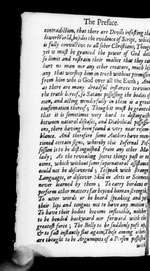 The Preface.
contradiction, that there are Devils infesting this
lower World, besides the evidence of Scripture, which
is fully convictive to all sober Christians; I must
yet it must be granted the power of God doth
so limit and restrain their malice that they can
hurt no man nor any other creature, much less
any that worship him in truth without permission
from him who is God over all the Earth; And
as there are many dreadful instances to evince
the truth of , so Satans possessing the bodies of
men, and acting wonderfully in them is a great
confirmation thereof; Though it must be granted
that it is sometimes very hard to distinguish
between natural diseases, and Diabolical possessi-
ons, there having been found a very near resem-
blance. And therefore some Authors have men-
tioned certain signs, whereby this Infernal Pos-
session is to be distinguished from any other Ma-
lady; As the revealing Secret things past or to
come, which without some supernatural assistance
could not be discovered; To speak with strange
Languages, or discover Skill in Arts or Sciences
never learned by them; To carry burdens or
perform other matters far beyond humane strength;
To utter words or be heard speaking and yet
their lips and tongues not to have any motion;
To have their bodies become inflexible, neither
to be bended backward nor forward with the
greatest force; The Belly to be suddenly puft up,
Or to fall instantly flat again; These among others
are thought to be Arguments of a Person possessed